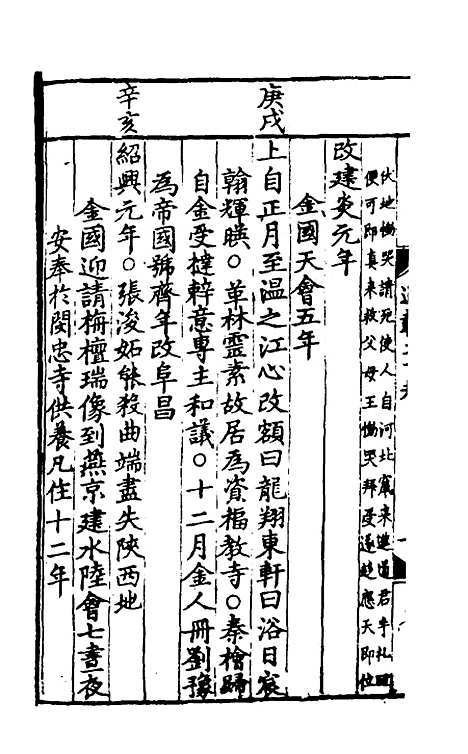 伏地慟哭請死使人自河北竄來進道君手札曰
便可即真來救父母王慟哭拜受遂趨應天即位
改建炎元年
金國天會五年
庚戌
上自正月至温之江心改額曰龍翔東軒曰浴日宸
翰輝暎○革林靈素故居為資福教寺○秦檜歸
自金受撻辣意專主和議○十二月金人冊劉豫
為帝國號齊年改阜昌
辛亥
紹興元年○張浚妬能殺曲端盡失陝西地
金國迎請栴檀瑞像到燕京建水陸會七晝夜
安奉於閔忠寺供養凡住十二年